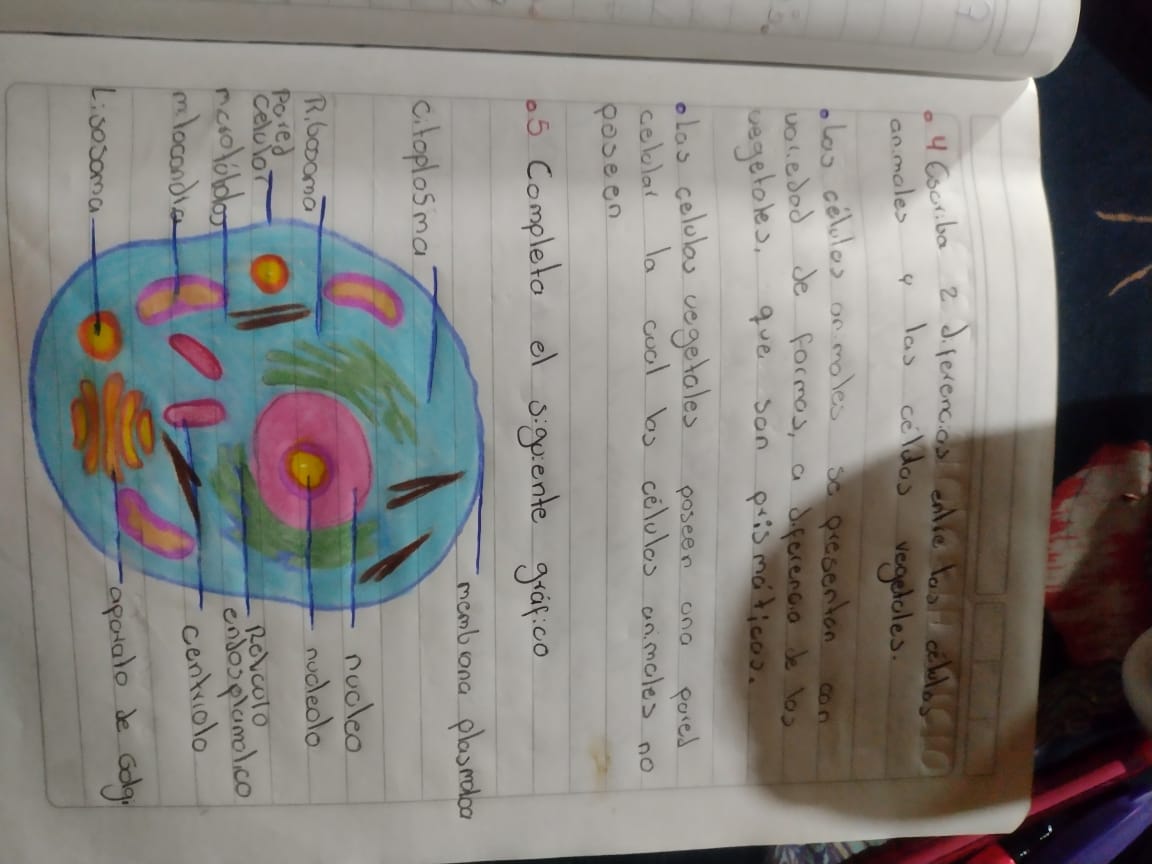 4 Escriba 2 diferencias entre las células
animales y las célilas vegetales.
• Las células animales se presentan con
variedad de formas, a diferencia de las
vegetales, que son prismáticas.
• Las celulas vegetales poseen una pared
celular la cual las células animales no
poseen
5 Completa el siguiente gráfico
Citoplasma
membrana plasmatica
Ribosoma
nucleo
Pared
celular
nucleolo
Reticulo
endosplamatico
mitocondria
centriolo
Lisosoma
aparato de Golgi